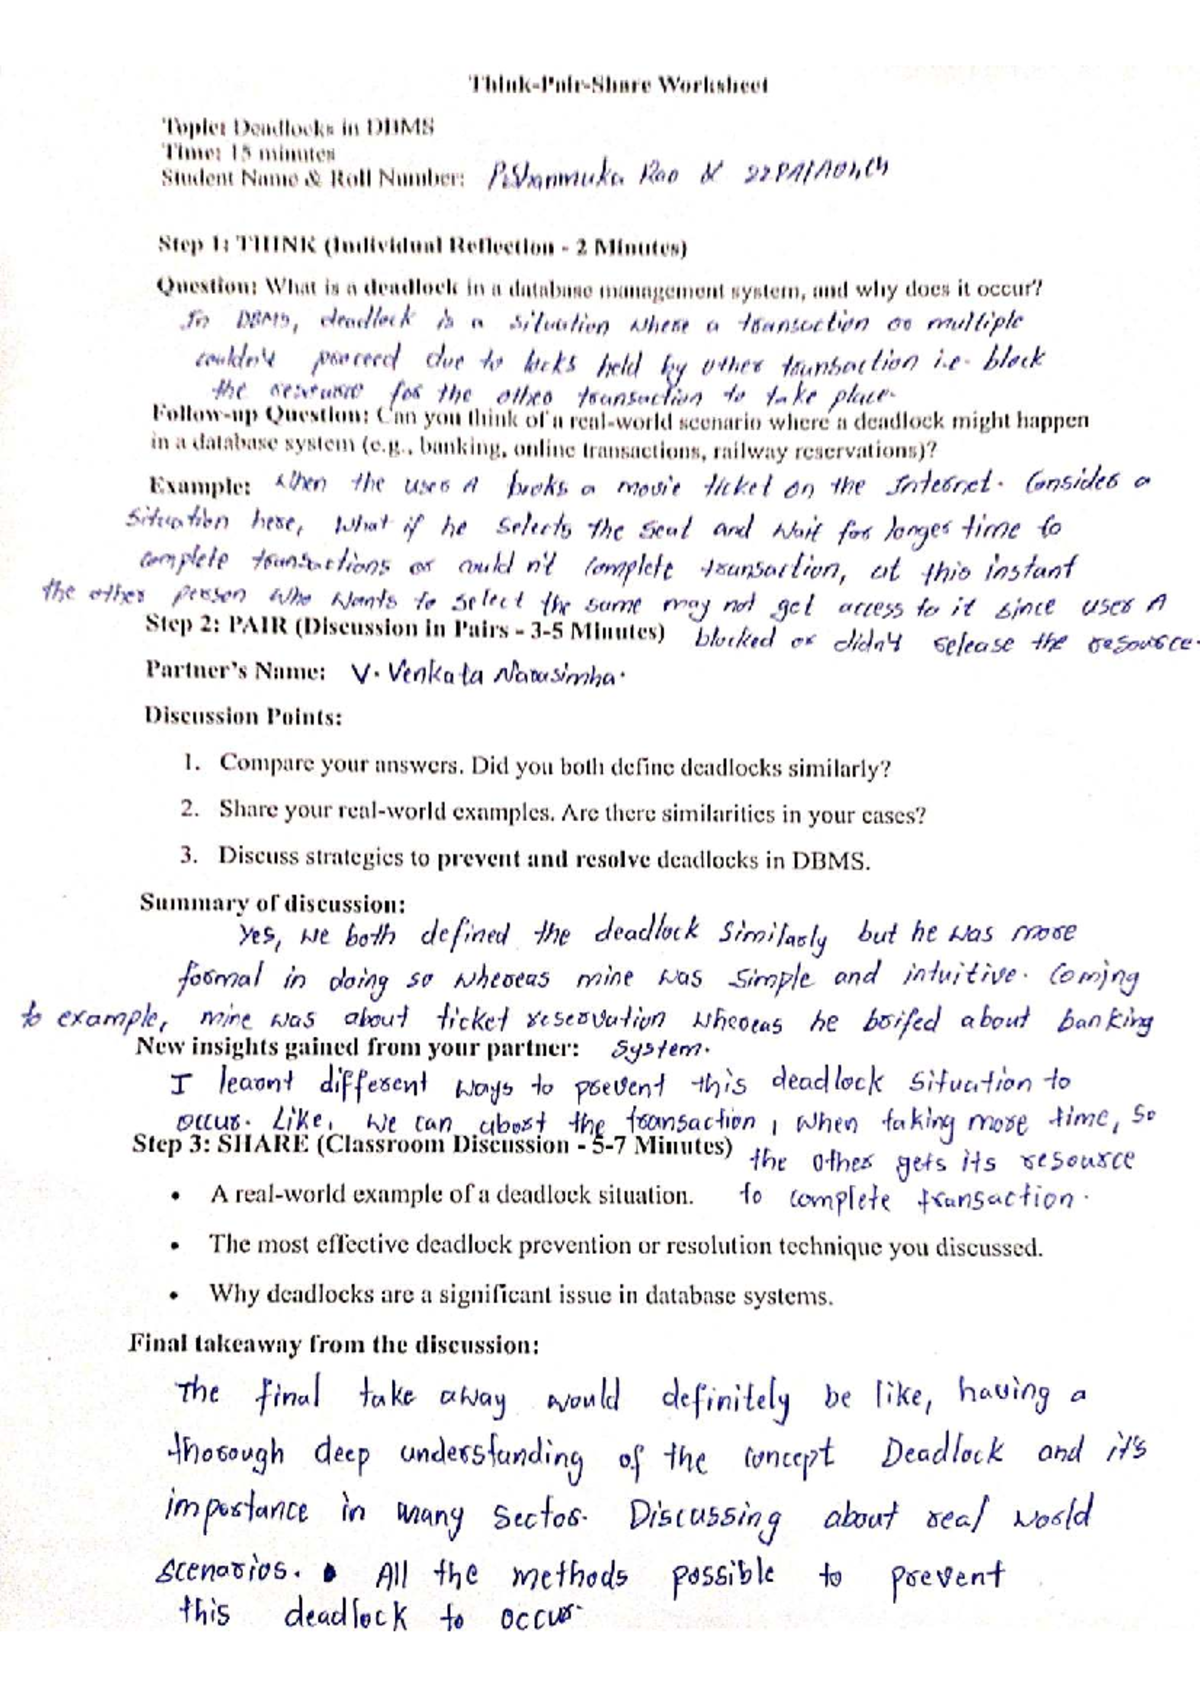 Think-Pair-Share Worksheet
Topic: Deadlocks in DBMS
Time: 15 minutes
Student Name & Roll Number: P.Shanmuka Rao &
Step 1: THINK (Individual Reflection - 2 Minutes)
Question: What is a deadlock in a database management system, and why does it occur?
In DBMS, deadlock is a situation where a transaction or multiple
couldn't proceed due to locks held by other transaction i.e. block
the resource for the other transaction to take place.
Follow-up Question: Can you think of a real-world scenario where a deadlock might happen
in a database system (e.g., banking, online transactions, railway reservations)?
Example: When the user A books a movie ticket on the Internet. Consider a
situation here, what if he selects the seat and wait for longer time to
complete transactions or could n't complete transaction, at this instant
the other person who wants to select the same may not get access to it since user A
Step 2: PAIR (Discussion in Pairs - 3-5 Minutes) blocked or didn't release the resource.
Partner's Name: V. Venkata Narasimha.
Discussion Points:
1. Compare your answers. Did you both define deadlocks similarly?
2. Share your real-world examples. Are there similarities in your cases?
3. Discuss strategies to prevent and resolve deadlocks in DBMS.
Summary of discussion:
Yes, we both defined the deadlock Similarly but he was more
formal in doing so whereas mine was simple and intuitive. Coming
to example, mine was about ticket reservation whereas he boifed about banking
New insights gained from your partner: System.
I learnt different ways to prevent this deadlock situation to
occur. Like, we can abort the transaction, when taking more time, so
Step 3: SHARE (Classroom Discussion - 5-7 Minutes) the other gets its resource
• A real-world example of a deadlock situation. to complete transaction.
• The most effective deadlock prevention or resolution technique you discussed.
• Why deadlocks are a significant issue in database systems.
Final takeaway from the discussion:
The final take away would definitely be like, having a
thorough deep understanding of the concept Deadlock and it's
importance in many sector. Discussing about real world
scenarios. All the methods possible to prevent
this deadlock to occur.